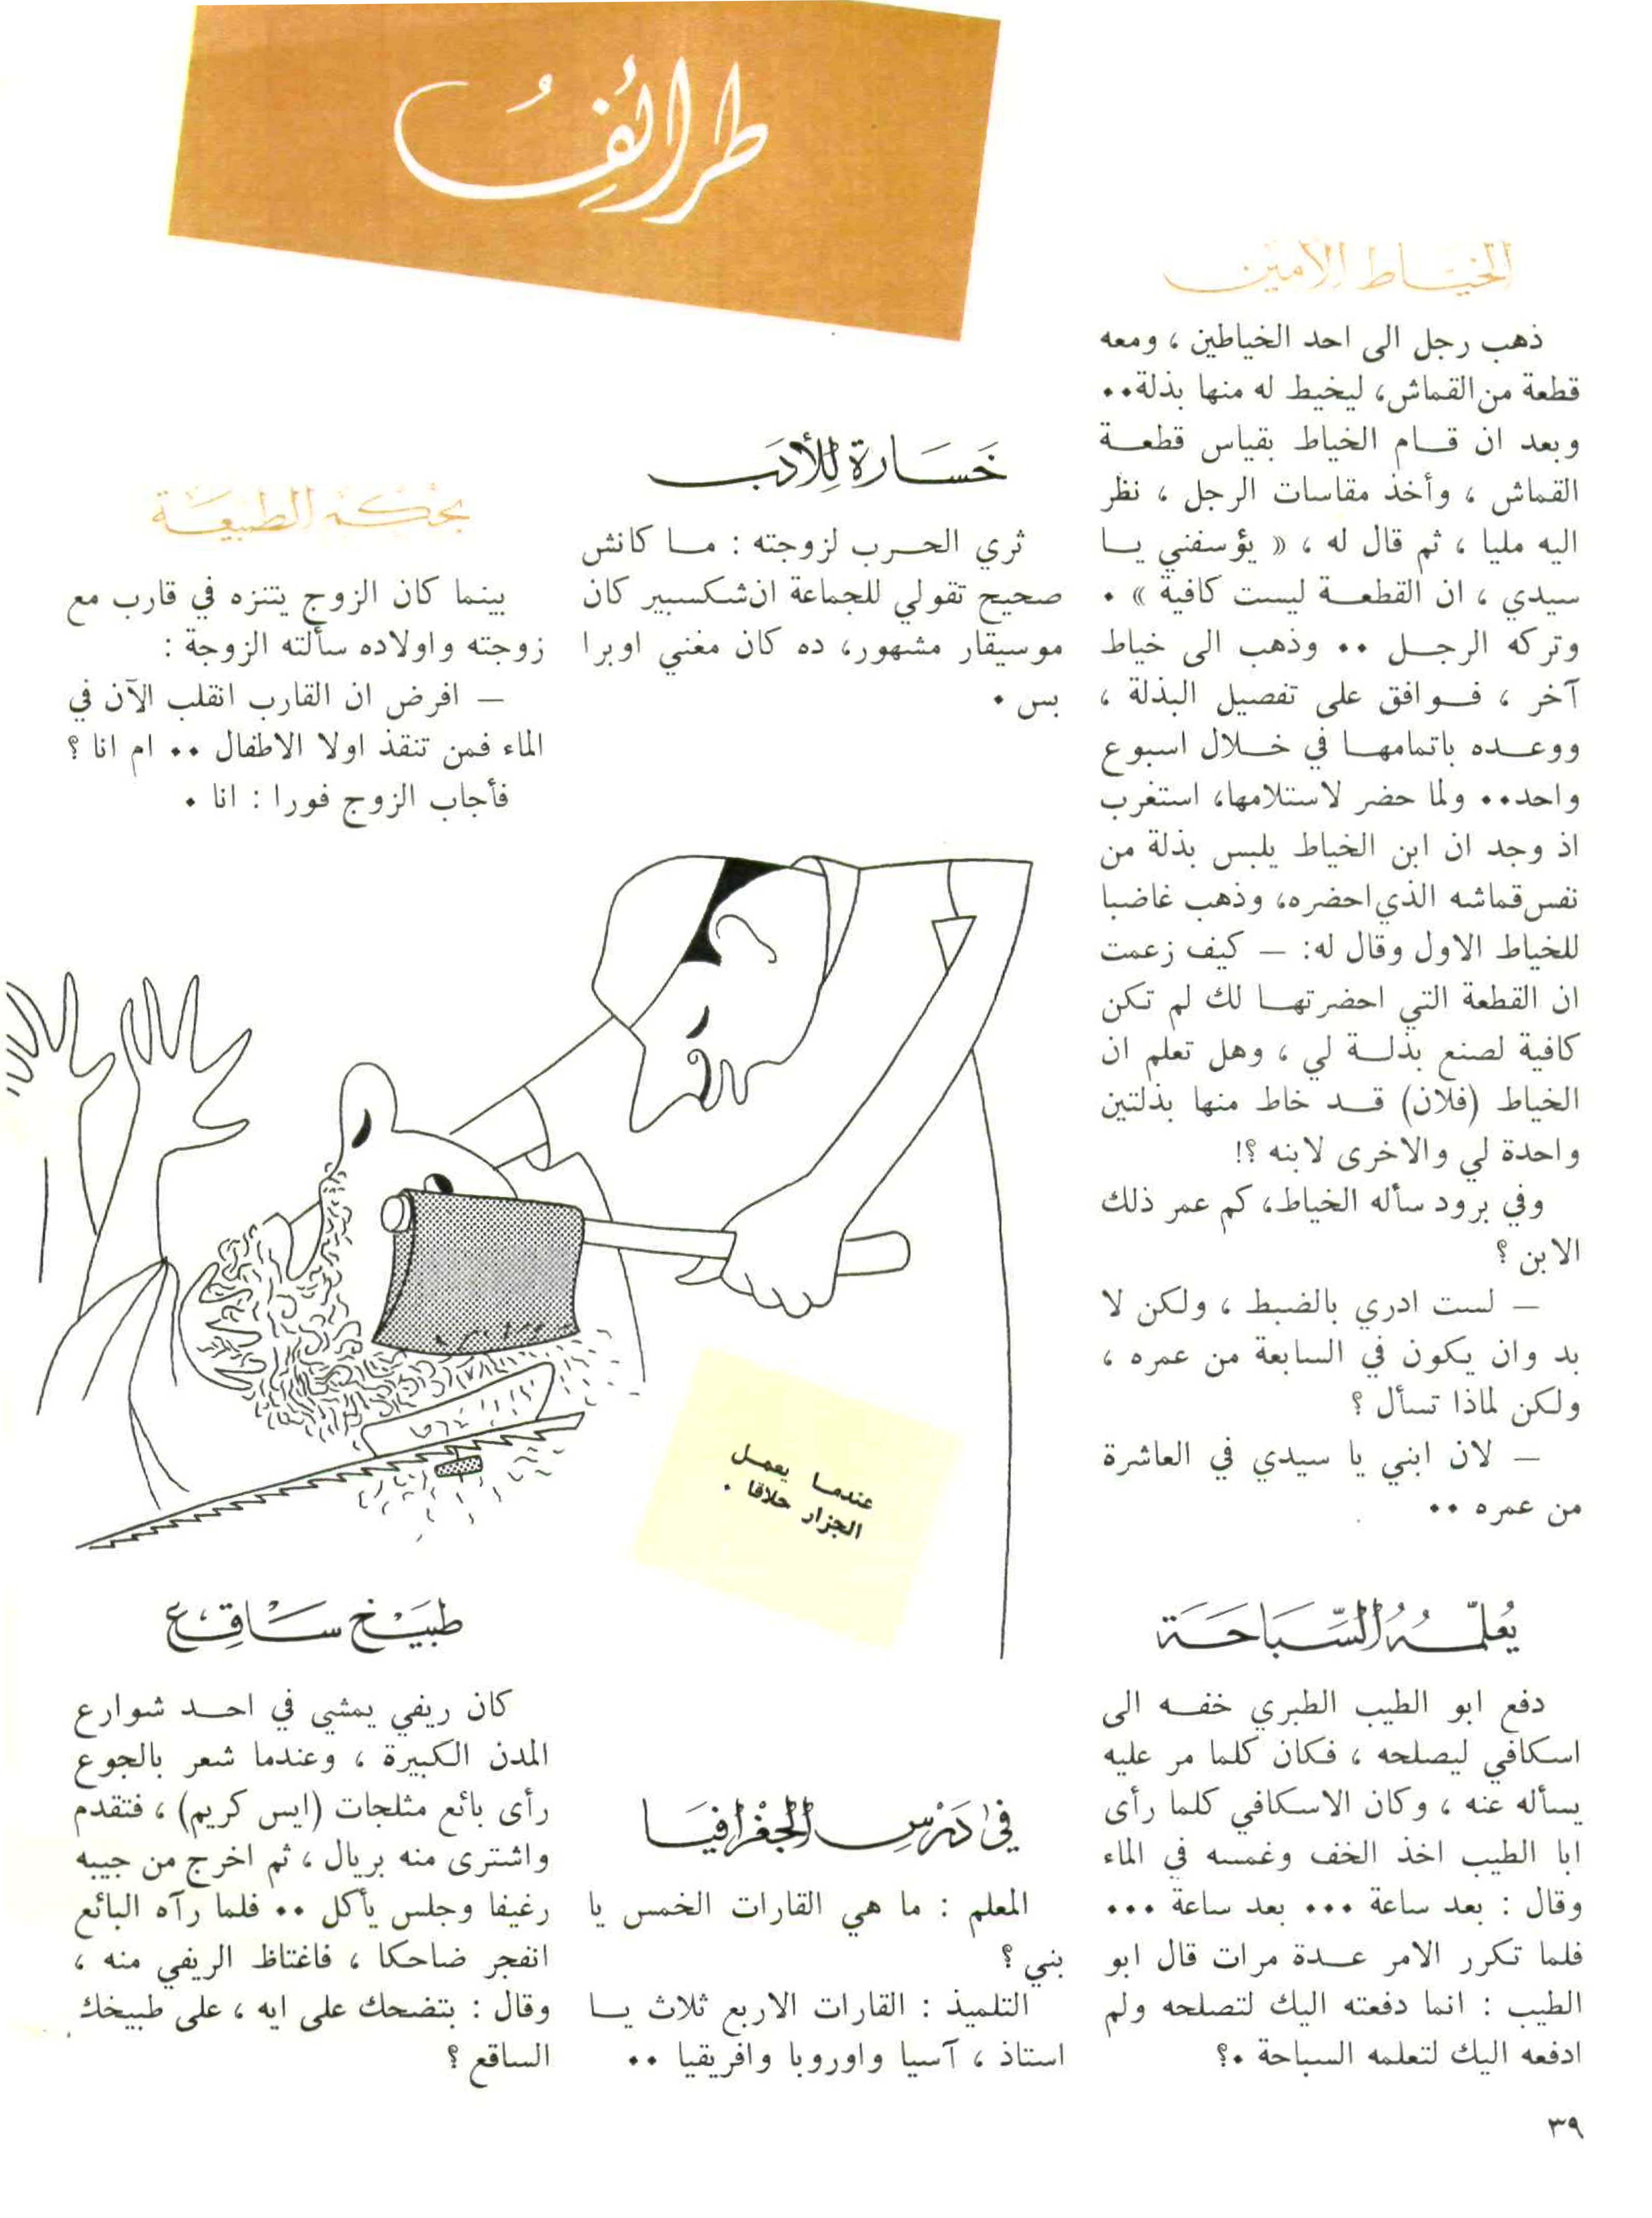 طرائف
الخياط الأمين
ذهب رجل الى احد الخياطين ، ومعه
قطعة من القماش، ليخيط له منها بذلة..
وبعد ان قام الخياط بقياس قطعة
القماش ، وأخذ مقاسات الرجل ، نظر
اليه مليا ، ثم قال له ، « يؤسفني يا
سيدي ، ان القطعة ليست كافية » .
وتركه الرجل .. وذهب الى خياط
آخر ، فوافق على تفصيل البذلة ،
ووعده باتمامها في خلال اسبوع
واحد.. ولما حضر لاستلامها، استغرب
اذ وجد ان ابن الخياط يلبس بذلة من
نفس قماشه الذي احضره، وذهب غاضبا
للخياط الاول وقال له: — كيف زعمت
ان القطعة التي احضرتها لك لم تكن
كافية لصنع بذلة لي ، وهل تعلم ان
الخياط (فلان) قد خاط منها بذلتين
واحدة لي والاخرى لابنه ؟!
وفي برود سأله الخياط، كم عمر ذلك
الابن ؟
— لست ادري بالضبط ، ولكن لا
بد وان يكون في السابعة من عمره ،
ولكن لماذا تسأل ؟
— لان ابني يا سيدي في العاشرة
من عمره ..
يُعلّمُهُ السِّبَاحَة
دفع ابو الطيب الطبري خفه الى
اسكافي ليصلحه ، فكان كلما مر عليه
يسأله عنه ، وكان الاسكافي كلما رأى
ابا الطيب اخذ الخف وغمسه في الماء
وقال : بعد ساعة ... بعد ساعة ...
فلما تكرر الامر عدة مرات قال ابو
الطيب : انما دفعته اليك لتصلحه ولم
ادفعه اليك لتعلمه السباحة .؟
خَسَارة لِلأدَب
ثري الحرب لزوجته : ما كانش
صحيح تقولي للجماعة ان شكسبير كان
موسيقار مشهور، ده كان مغني اوبرا
بس .
عندما يعمل
الجزار حلاقا .
في دَرْسِ الجغْرافيَا
المعلم : ما هي القارات الخمس يا
بني ؟
التلميذ : القارات الاربع ثلاث يا
استاذ ، آسيا واوروبا وافريقيا ..
بحكم الطبيعة
بينما كان الزوج يتنزه في قارب مع
زوجته واولاده سألته الزوجة :
— افرض ان القارب انقلب الآن في
الماء فمن تنقذ اولا الاطفال .. ام انا ؟
فأجاب الزوج فورا : انا .
طبَيْخ سَاقِع
كان ريفي يمشي في احد شوارع
المدن الكبيرة ، وعندما شعر بالجوع
رأى بائع مثلجات (ايس كريم) ، فتقدم
واشترى منه بريال ، ثم اخرج من جيبه
رغيفا وجلس يأكل .. فلما رآه البائع
انفجر ضاحكا ، فاغتاظ الريفي منه ،
وقال : بتضحك على ايه ، على طبيخك
الساقع ؟
٣٩